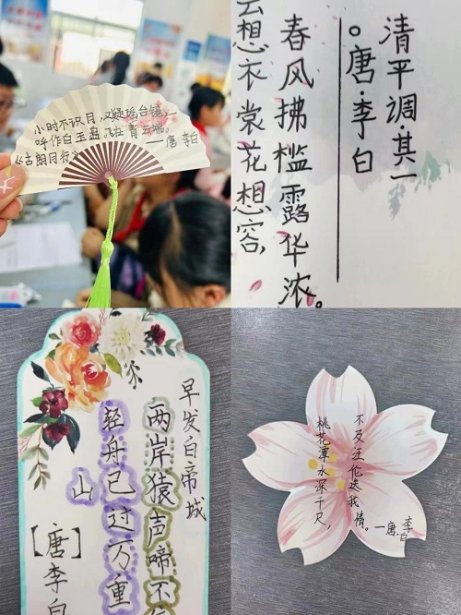 小时不识月，又疑瑶台镜，
呼作白玉盘，飞在青云端。
《古朗月行》——唐 李白
清平调·其一
。唐·李白
春风拂槛露华浓。
云想衣裳花想容，
早发白帝城
两岸猿声啼不
轻舟已过万重
山
【唐】李白
桃花潭水深千尺，
不及汪伦送我情。
—唐·李白